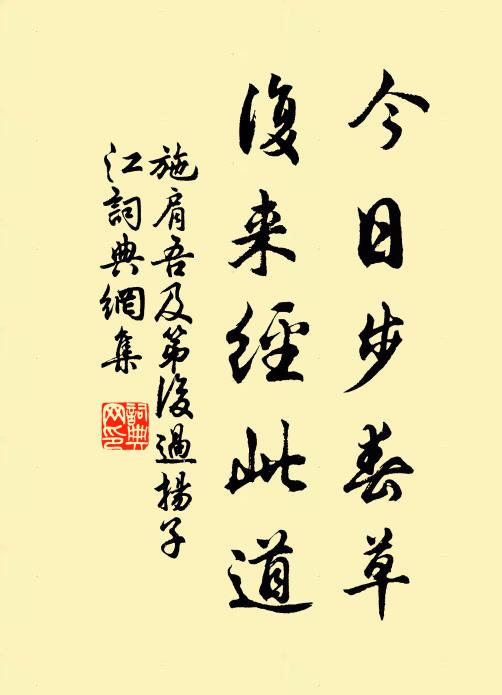 今日步春草
復来經此道
施肩吾及第後過揚子
江詞典網集
詞典
网印